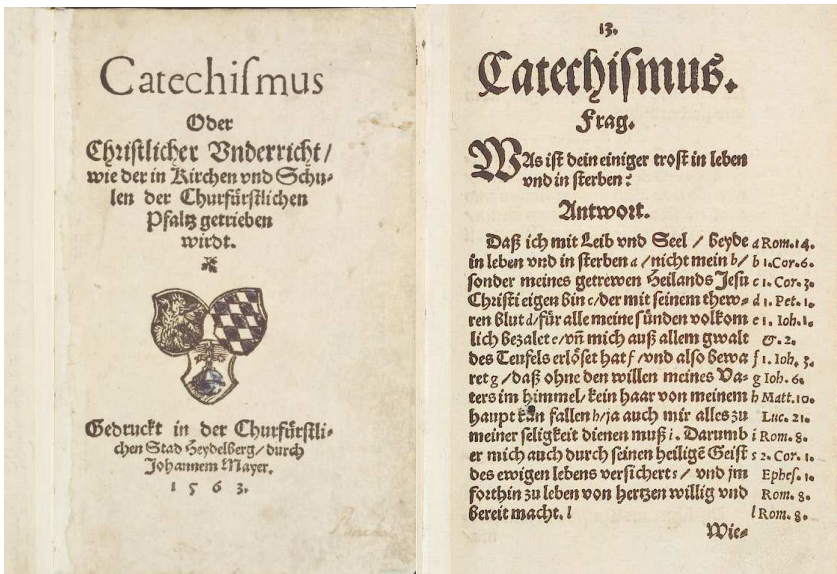 Catechiſmus
Oder
Chriſtlicher Vnderricht/
wie der in Kirchen vnd Schu-
len der Churfürſtlichen
Pfaltz getrieben
wirdt.
Gedruckt in der Churfürſtli-
chen Stad Heydelberg/durch
Johannem Mayer.
1 5 6 3.
13.
Catechiſmus.
Frag.
WAs iſt dein einiger troſt in leben
vnd in ſterben?
Antwort.
Daß ich mit Leib vnd Seel / beyde a Rom.14.
in leben vnd in ſterben a /nicht mein b/ b 1.Cor.6.
ſonder meines getrewen Heilands Jeſu c 1. Cor. 3.
Chriſti eigen bin c/der mit ſeinem thew- d 1. Pet. 1.
ren blut d/für alle meine ſünden volkom e 1. Ioh.1.
lich bezalet e/vn̄ mich auß allem gwalt &. 2.
des Teufels erlöſet hat f /vnd alſo bewa f 1. Ioh. 3.
ret g/daß ohne den willen meines Va- g Ioh. 6.
ters im himmel/kein haar von meinem h Matt.10.
haupt kan fallen h/ja auch mir alles zu Luc. 21.
meiner ſeligkeit dienen muß i. Darumb i Rom. 8.
er mich auch durch ſeinen heiligē Geiſt s 2. Cor. 1.
des ewigen lebens verſichert s / vnd jm Epheſ. 1.
forthin zu leben von hertzen willig vnd Rom. 8.
bereit macht. l l Rom. 8.
Wie-